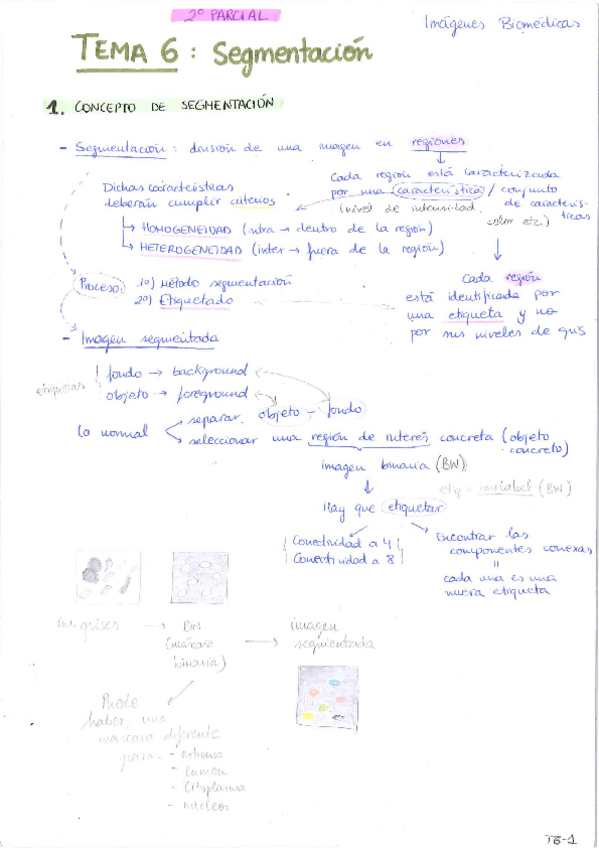 2º PARCIAL
Imágenes Biomédicas
TEMA 6 : Segmentación
1. CONCEPTO DE SEGMENTACIÓN
- Segmentación : división de una imagen en regiones
Cada región está caracterizada
por una característica / conjunto
de caracterís-
ticas
(nivel de intensidad,
color etc.)
Dichas características
deberán cumplir criterios
↳ HOMOGENEIDAD (intra → dentro de la región)
↳ HETEROGENEIDAD (inter → fuera de la región)
Cada región
está identificada por
una etiqueta y no
por sus niveles de gris
Proceso: 1º) Método segmentación
2º) Etiquetado
- Imagen segmentada
etiquetas
fondo → background
objeto → foreground
lo normal
separar objeto - fondo
seleccionar una región de interés concreta (objeto
concreto)
imagen binaria (BW)
etiq = bwlabel (BW)
Hay que etiquetar
Conectividad a 4
Conectividad a 8
Encontrar las
componentes conexas
=
cada una es una
nueva etiqueta
im. grises → BW
(máscara
binaria)
→ imagen
segmentada
Puede
haber una
máscara diferente
para: - estroma
- lumen
- citoplasma
- núcleos
T6-1